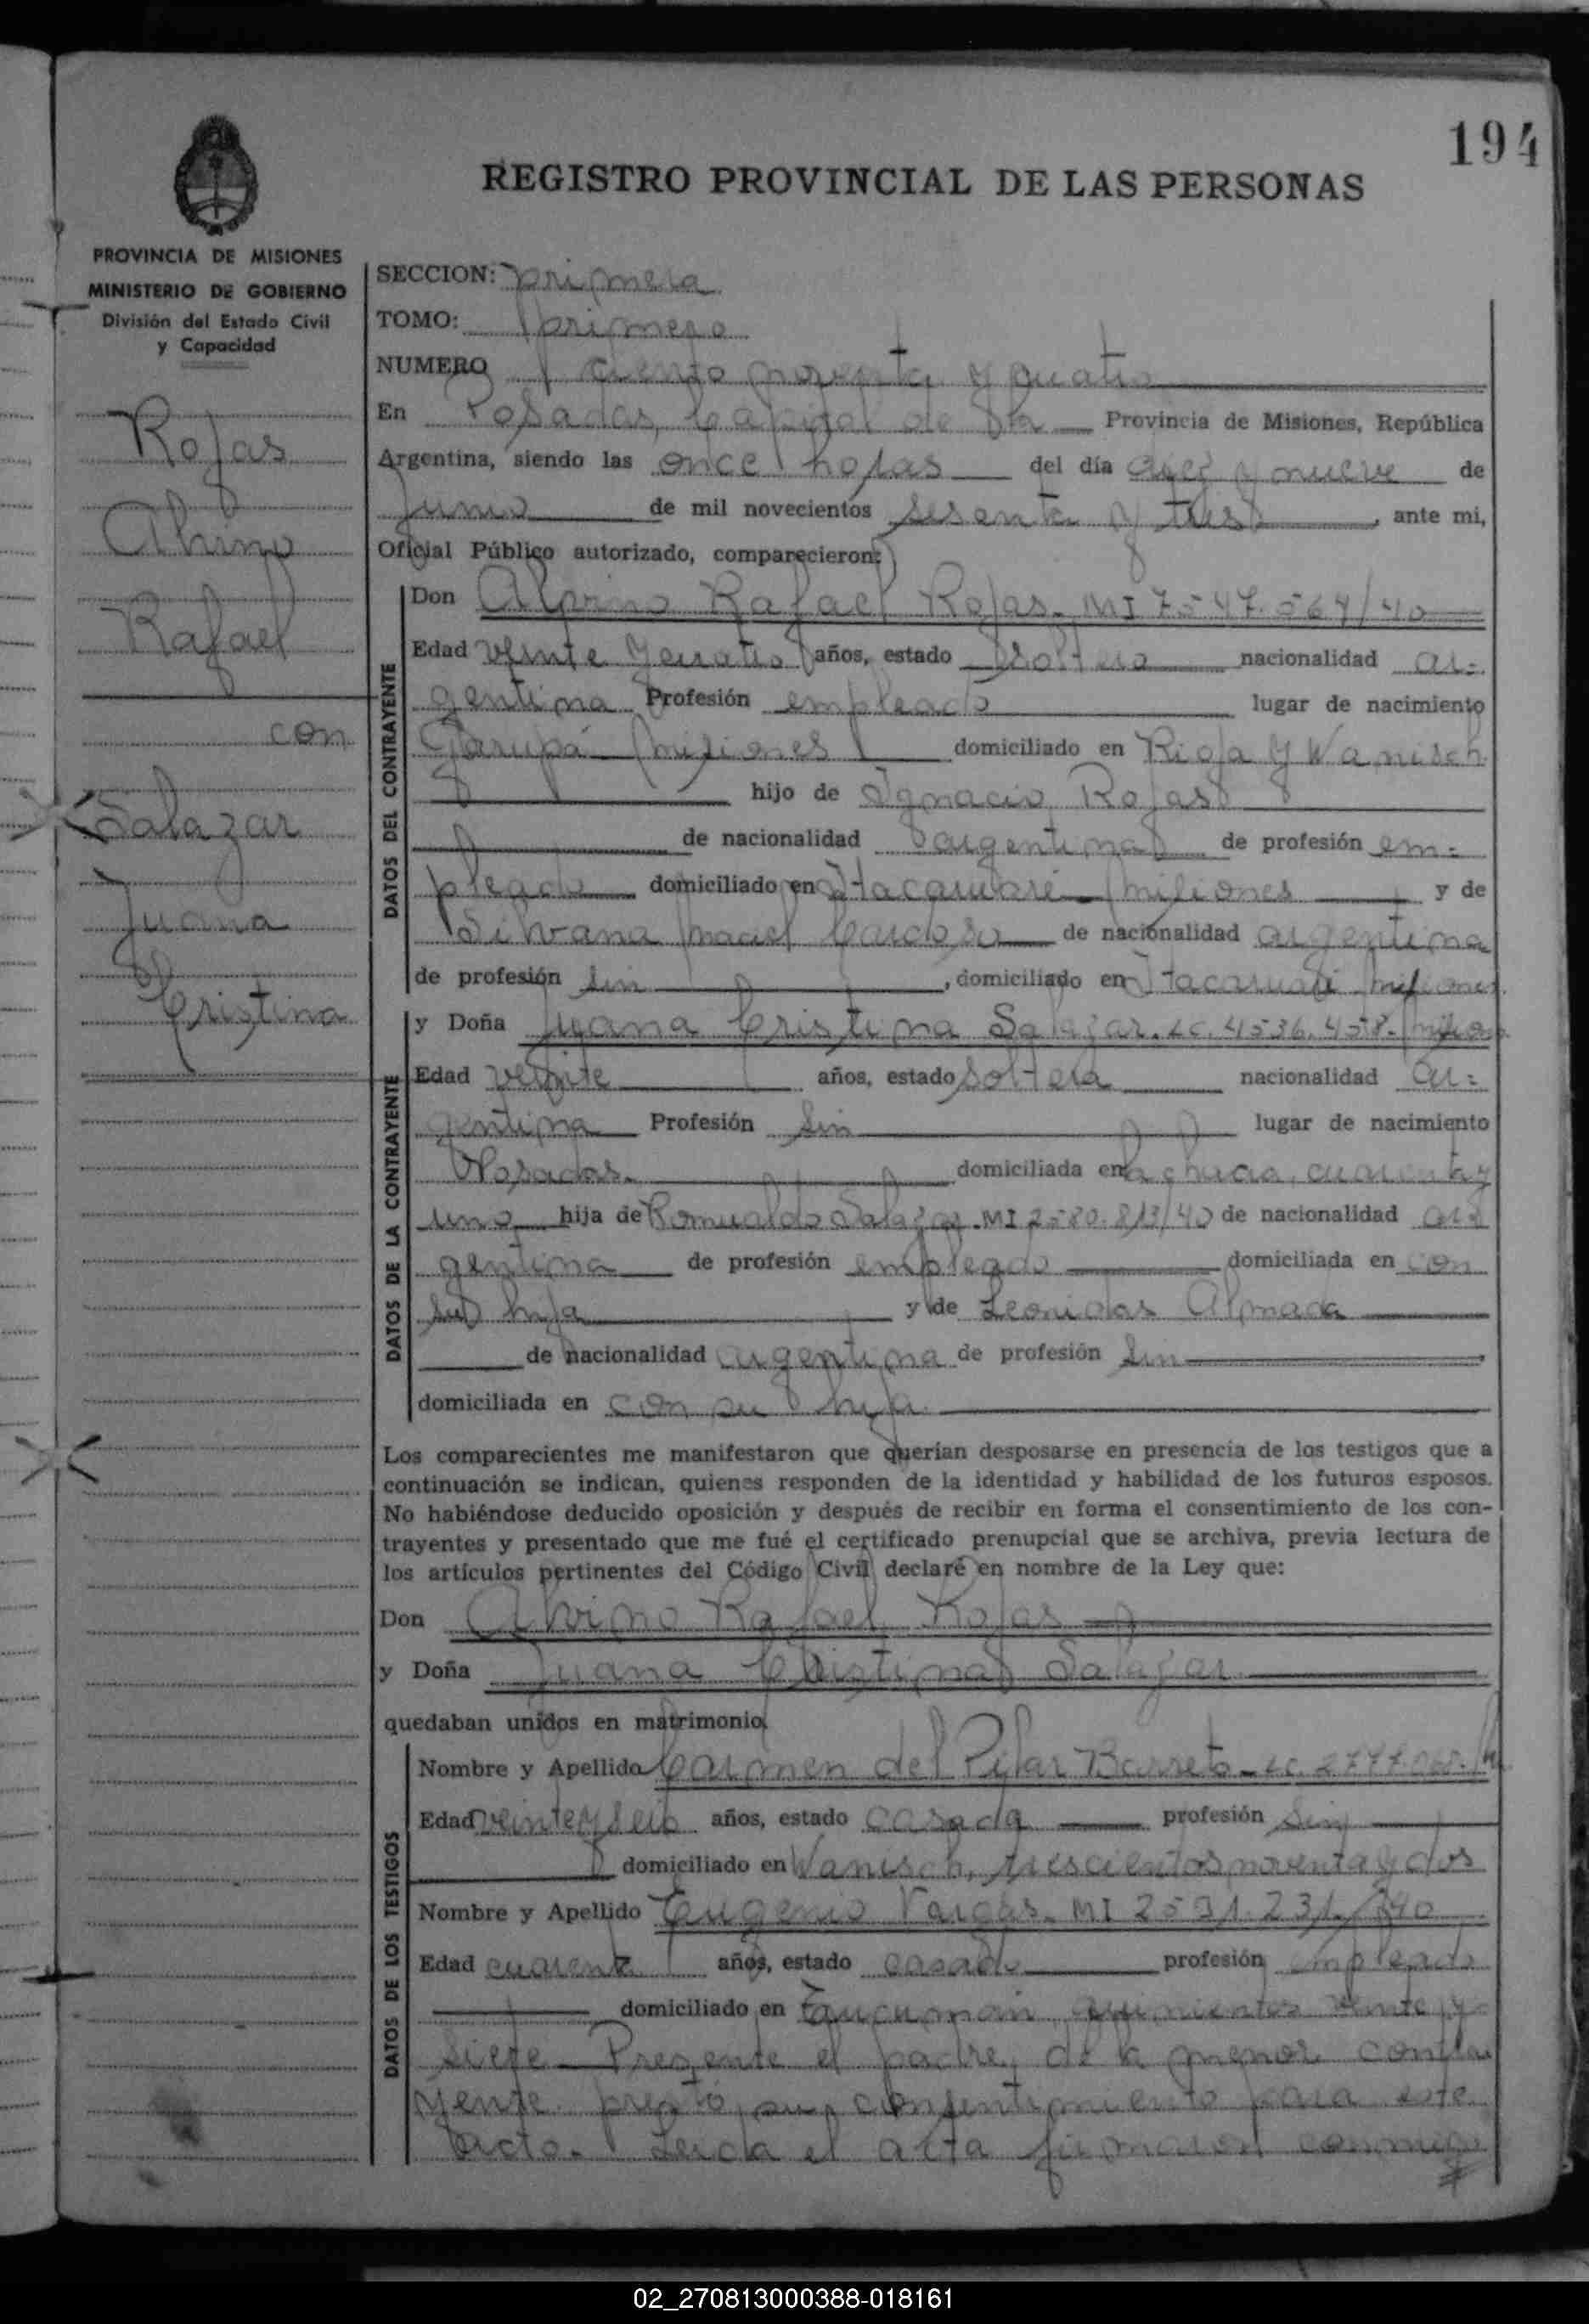 194
REGISTRO PROVINCIAL DE LAS PERSONAS
PROVINCIA DE MISIONES
MINISTERIO DE GOBIERNO
División del Estado Civil
y Capacidad
Rojas
Alvino
Rafael
con
Salazar
Juana
Cristina
SECCION: primera
TOMO: primero
NUMERO ciento noventa y cuatro
En Posadas, Capital de la Provincia de Misiones, República
Argentina, siendo las once horas del día diez y nueve de
junio de mil novecientos sesenta y tres, ante mi,
Oficial Público autorizado, comparecieron:
Don Alvino Rafael Rojas. MI 7547.564/40
Edad veinte y cuatro años, estado soltero nacionalidad ar-
gentina Profesión empleado lugar de nacimiento
Garupá Misiones domiciliado en Rioja y Wanisch
hijo de Ignacio Rojas
de nacionalidad argentina de profesión em-
pleado domiciliado en Itacaruaré Misiones y de
Silvana Maciel Cardoso de nacionalidad argentina
de profesión sin, domiciliado en Itacaruaré Misiones
y Doña Juana Cristina Salazar. LC. 4536.458. Misiones
Edad veinte años, estado soltera nacionalidad ar-
gentina Profesión sin lugar de nacimiento
Posadas. domiciliada en chacra cuarenta y
uno hija de Romualdo Salazar. MI 2580.813/40 de nacionalidad ar-
gentina de profesión empleado domiciliada en con
su hija y de Leonidas Almada
de nacionalidad argentina de profesión sin
domiciliada en con su hija.
Los comparecientes me manifestaron que querían desposarse en presencia de los testigos que a
continuación se indican, quienes responden de la identidad y habilidad de los futuros esposos.
No habiéndose deducido oposición y después de recibir en forma el consentimiento de los con-
trayentes y presentado que me fué el certificado prenupcial que se archiva, previa lectura de
los artículos pertinentes del Código Civil declaré en nombre de la Ley que:
Don Alvino Rafael Rojas
y Doña Juana Cristina Salazar
quedaban unidos en matrimonio
Nombre y Apellido Carmen del Pilar Barreto - LC.
Edad veinte y seis años, estado casada profesión sin
domiciliado en Wanisch, trescientos noventa y dos
Nombre y Apellido Eugenio Vargas. MI 2531.231/40
Edad cuarenta años, estado casado profesión empleado
domiciliado en Tucumán quinientos veinte y
siete. Presente el padre de la menor contra
yente prestó su consentimiento para este
acto. Leida el acta firmaron conmigo
DATOS DEL CONTRAYENTE
DATOS DE LA CONTRAYENTE
DATOS DE LOS TESTIGOS
02_270813000388-018161